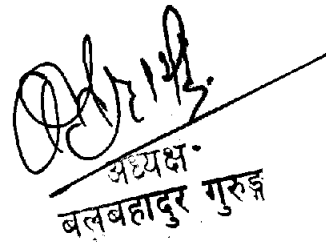 अध्यक्ष
बलबहादुर गुरुङ्ग